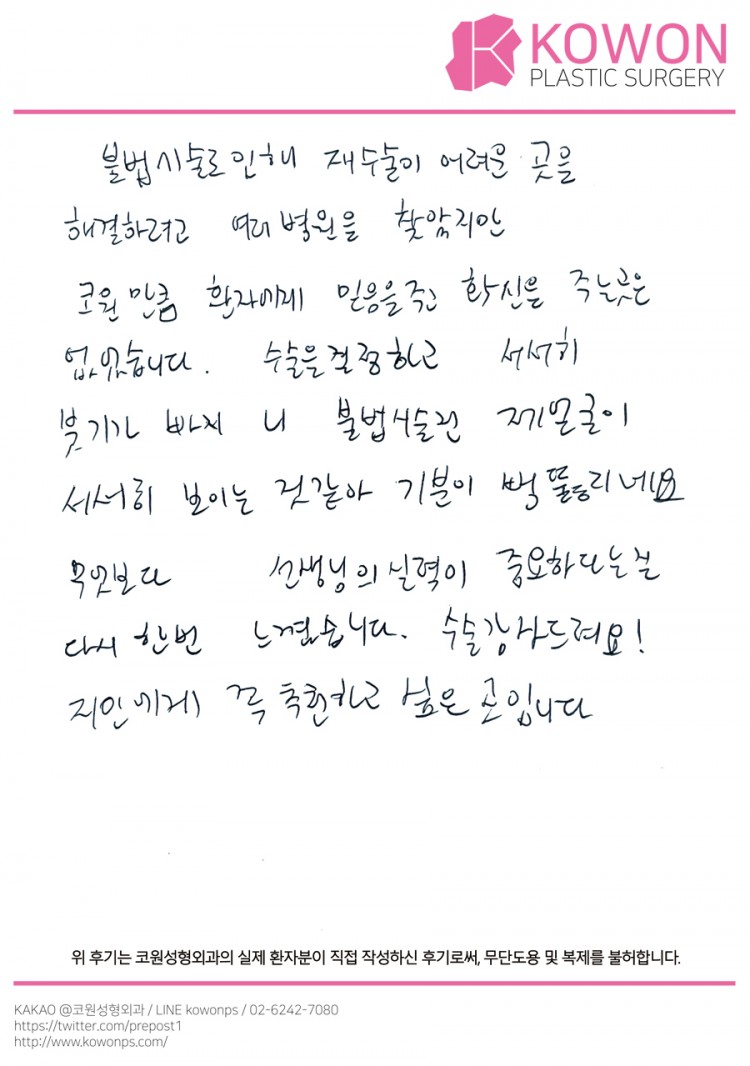 KOWON
PLASTIC SURGERY
불법시술로 인해 재수술이 어려운 곳을
해결하려고 여러 병원을 찾았지만
코원 만큼 환자에게 믿음을 주고 확신을 주는곳은
없었습니다. 수술을 결정하고 서서히
붓기가 빠지 니 불법시술전 제얼굴이
서서히 보이는 것같아 기분이 뻑뚫리네요
무엇보다 선생님의 실력이 중요하다는걸
다시 한번 느꼈습니다. 수술감사드려요!
지인에게 꼭 추천하고 싶은 곳입니다
위 후기는 코원성형외과의 실제 환자분이 직접 작성하신 후기로써, 무단도용 및 복제를 불허합니다.
KAKAO @코원성형외과 / LINE kowonps / 02-6242-7080
https://twitter.com/prepost1
http://www.kowonps.com/